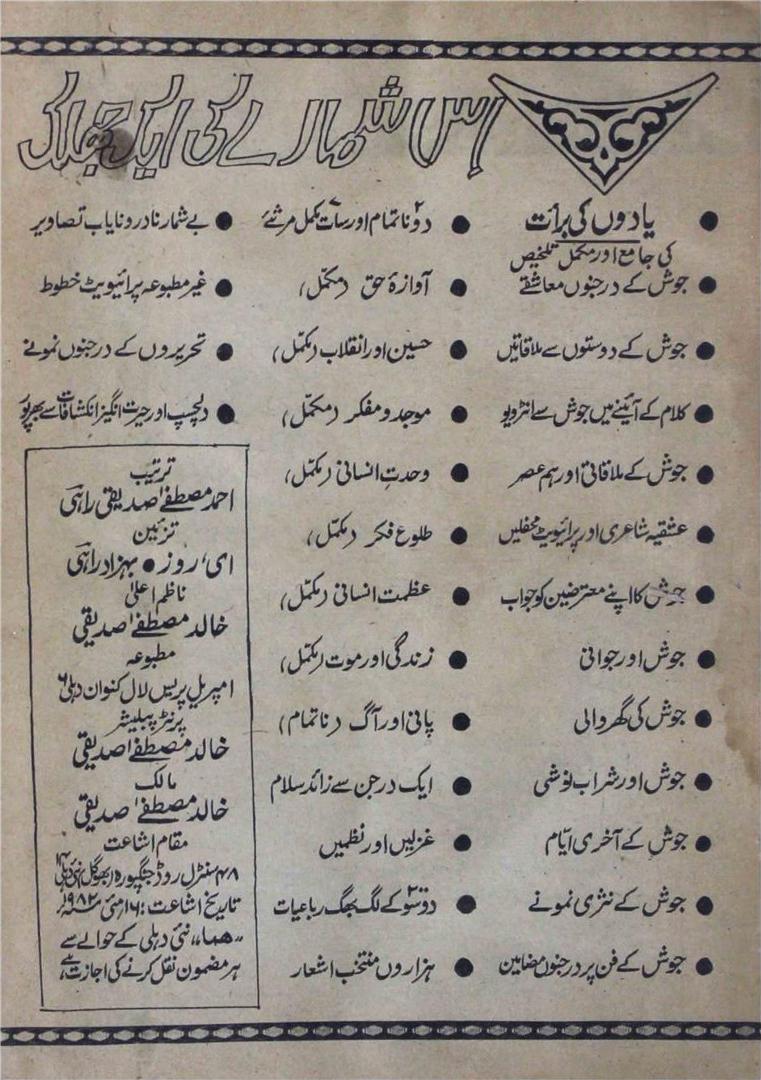 اس شمارے کی ایک جھلک
● یادوں کی برات
کی جامع اور مکمل تلخیص
● جوش کے درجنوں معاشقے
● جوش کے دوستوں سے ملاقاتیں
● کلام کے آئینے میں جوش سے انٹرویو
● جوش کے ملاقاتی اور ہم عصر
● عشقیہ شاعری اور پرائیویٹ محفلیں
● جوش کا اپنے معترضین کو جواب
● جوش اور جوانی
● جوش کی گھر والی
● جوش اور شراب نوشی
● جوش کے آخری ایام
● جوش کے نثری نمونے
● جوش کے فن پر درجنوں مضامین
● دو۲ ناتمام اور سات۷ مکمل مرثئے
● آوازۂ حق (مکمّل)
● حسین اور انقلاب (مکمّل)
● موجد و مفکر (مکمّل)
● وحدتِ انسانی (مکمّل)
● طلوع فکر (مکمّل)
● عظمت انسانی (مکمّل)
● زندگی اور موت (مکمّل)
● پانی اور آگ (ناتمام)
● ایک درجن سے زائد سلام
● غزلیں اور نظمیں
● دو۲ سو کے لگ بھگ رباعیات
● ہزاروں منتخب اشعار
● بے شمار نادر و نایاب تصاویر
● غیر مطبوعہ پرائیویٹ خطوط
● تحریروں کے درجنوں نمونے
● دلچسپ اور حیرت انگیز انکشافات سے بھرپور
ترتیب
احمد مصطفےٰ صدیقی راہی
تزئین
ای، روز ● بہزاد راہی
ناظم اعلیٰ
خالد مصطفےٰ صدیقی
مطبوعہ
امپریل پریس لال کنواں دہلی ۶
پرنٹر پبلیشر
خالد مصطفےٰ صدیقی
مالک
خالد مصطفےٰ صدیقی
مقام اشاعت
۴۸ سنٹرل روڈ جنگپورہ (بھوگل) نئی دہلی ۱۴
تاریخ اشاعت : ۱۶ مئی ۱۹۸۲ء
"ھما"، نئی دہلی کے حوالے سے
ہر مضمون نقل کرنے کی اجازت ہے